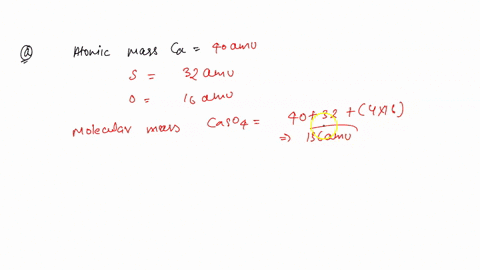 (a) Atomic mass Ca = 40 amu
S = 32 amu
O = 16 amu
Molecular mass CaSO4 = 40 + 32 + (4×16)
⇒ 136 amu